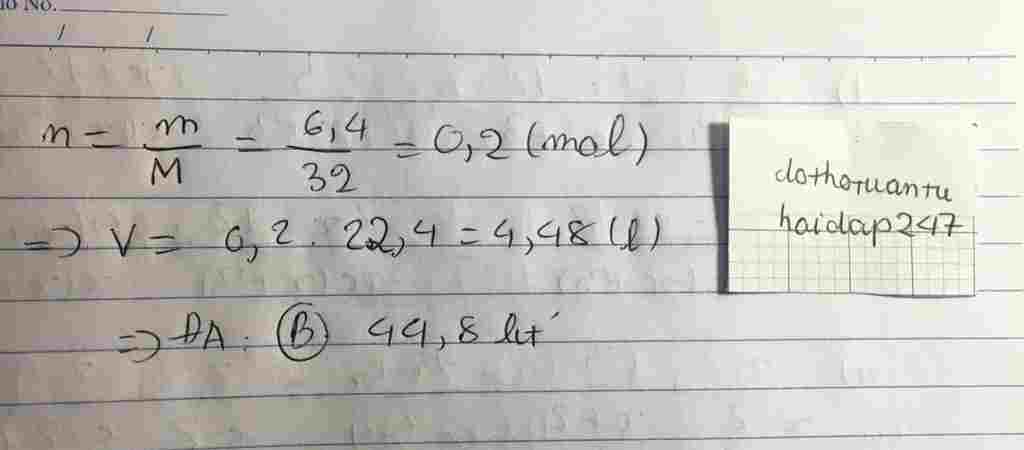 No.
n = m/M = 6,4/32 = 0,2 (mol)
=> V = 0,2 . 22,4 = 4,48 (l)
=> ĐA : B 44,8 lít
dothotuantu
hoidap247